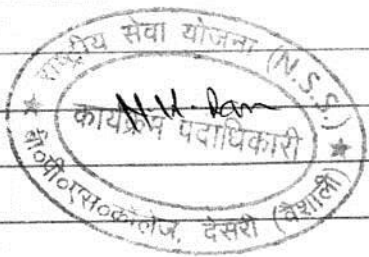 राष्ट्रीय सेवा योजना (N.S.S.)
कार्यक्रम पदाधिकारी
N.K. Ram
बी०पी०एस०कॉलेज, देसरी (वैशाली)